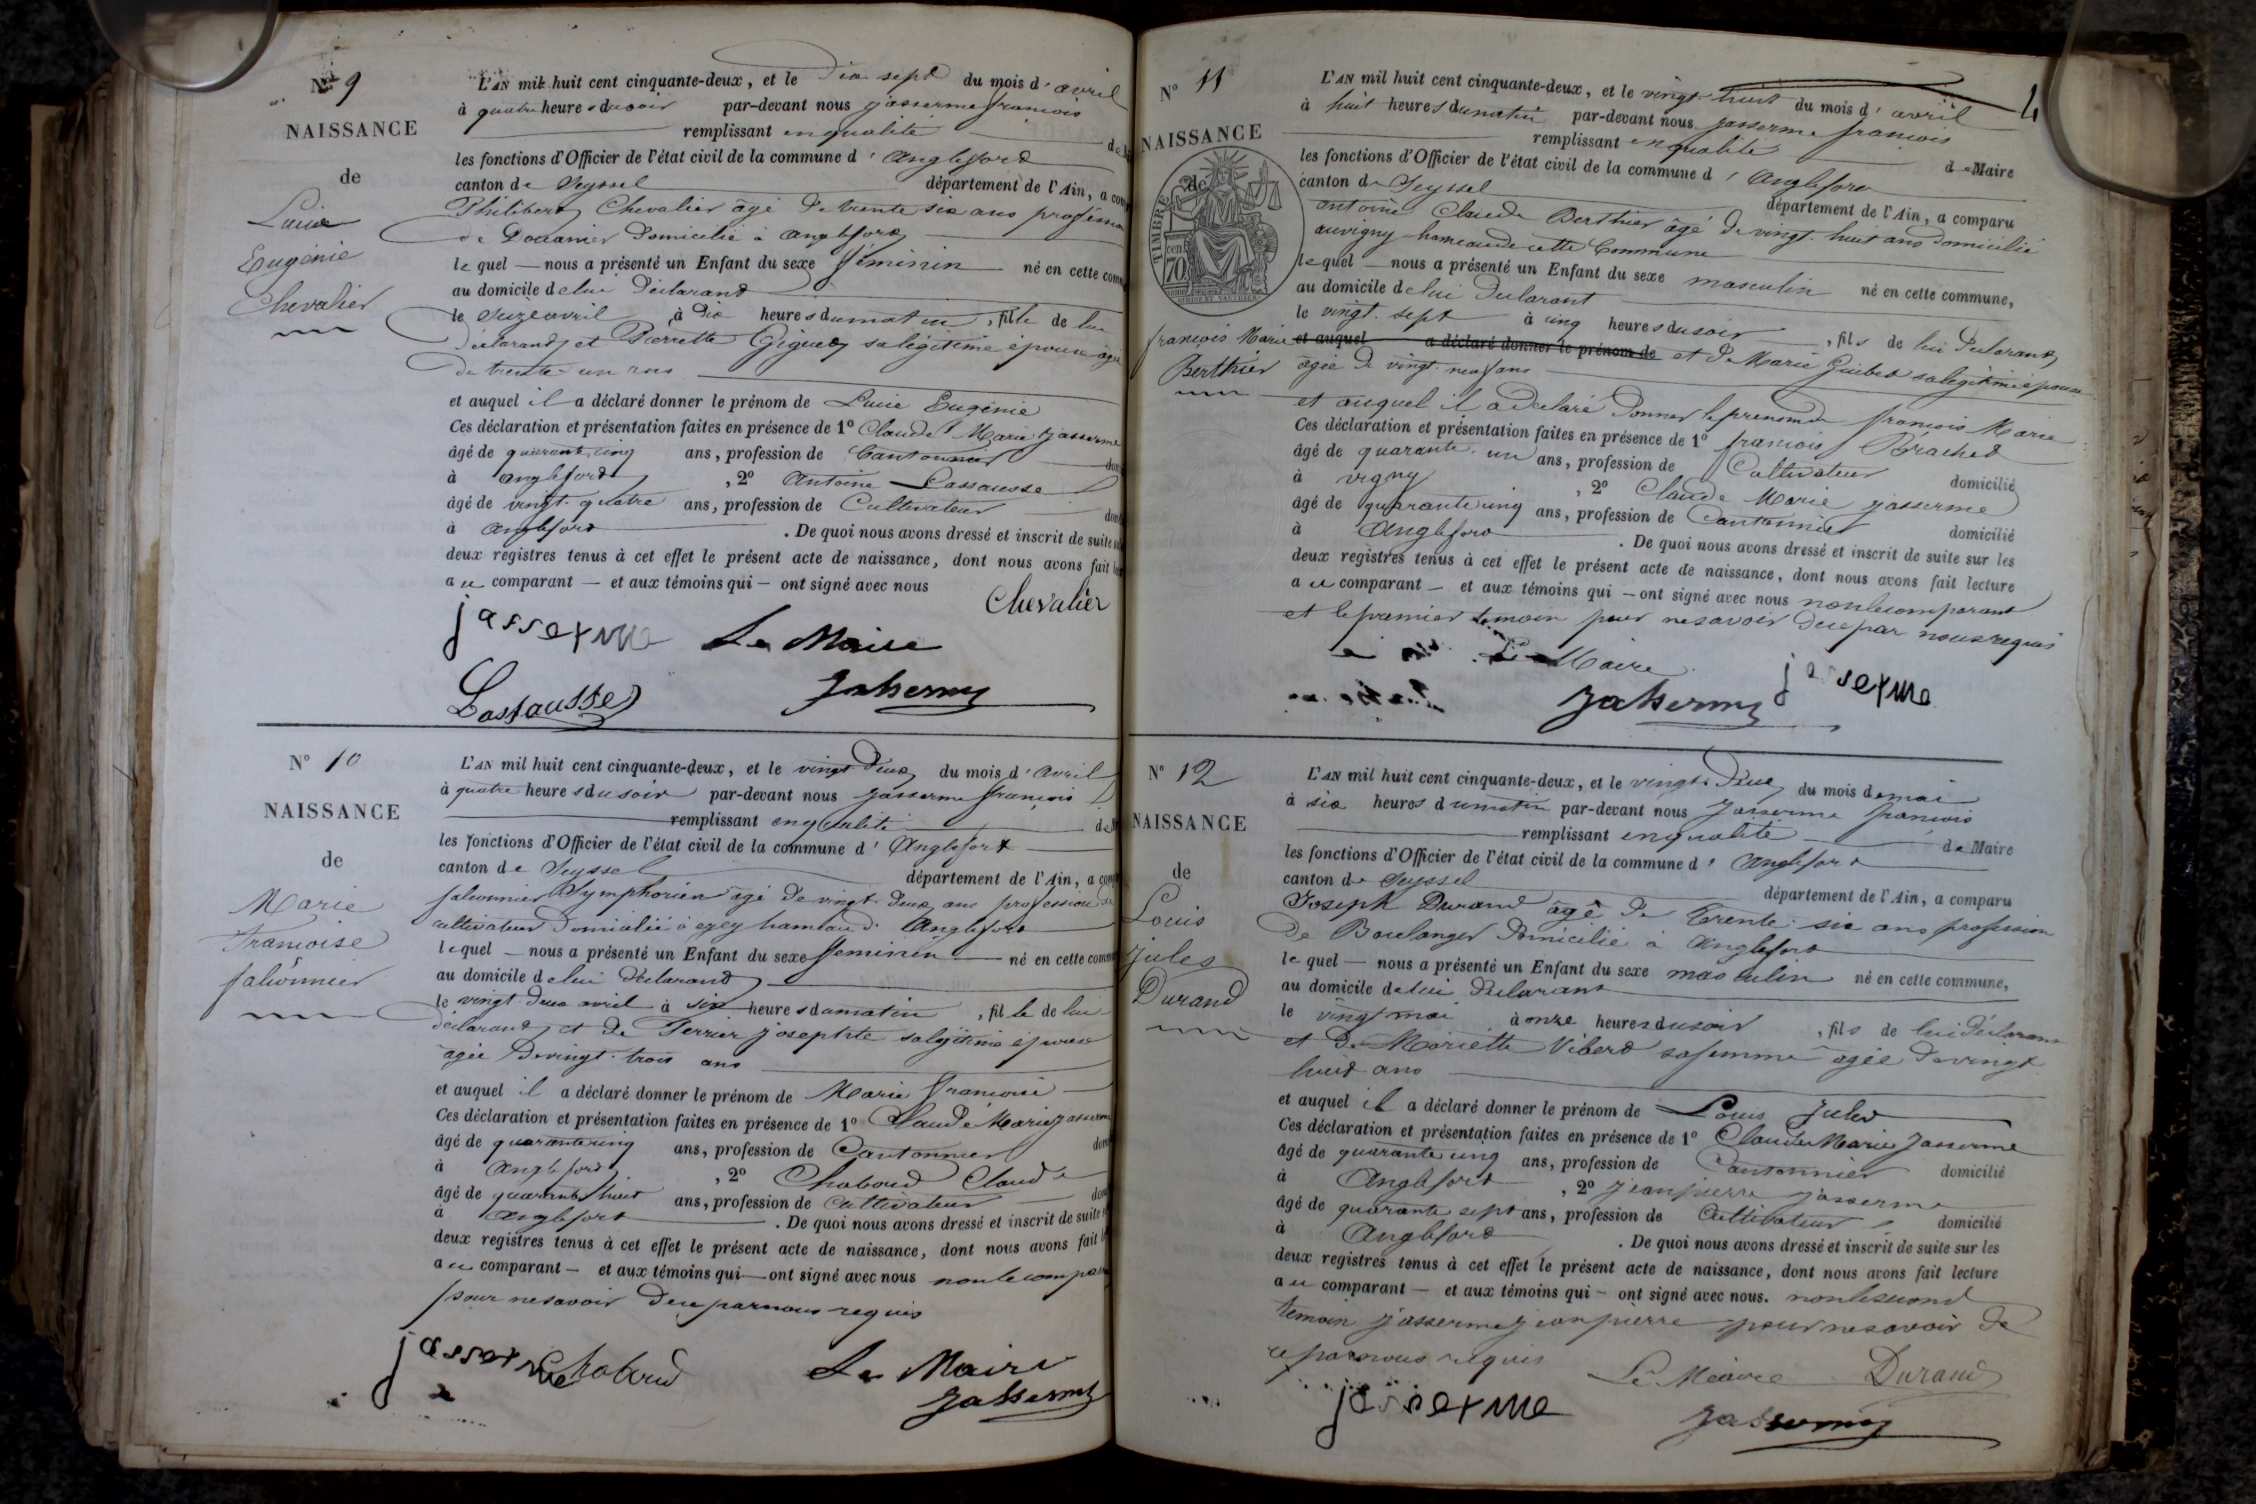 Nº 9
NAISSANCE
de
Lucie
Eugénie
Chevalier
L'AN mil huit cent cinquante-deux, et le dix sept du mois d'avril
à quatre heures du soir par-devant nous jasserme françois
remplissant en qualité de
les fonctions d'Officier de l'état civil de la commune d'Angleford
canton de Seyssel département de l'Ain, a com
Philibert Chevalier âgé de trente six ans profession
de Douanier domicilié à angleford
lequel — nous a présenté un Enfant du sexe féminin né en cette comm
au domicile de lui déclarand
le seize avril à dix heures du matin, fille de lui
déclarand et Pierrette Giguet sa légitime épouse âgée
de trente-un ans
et auquel il a déclaré donner le prénom de Lucie Eugénie
Ces déclaration et présentation faites en présence de 1º Claude Marie jasserme
âgé de quarante cinq ans, profession de Cantonnier dom
à angleford, 2º Antoine Lassausse
âgé de vingt-quatre ans, profession de Cultivateur dom
à angleford. De quoi nous avons dressé et inscrit de suite
deux registres tenus à cet effet le présent acte de naissance, dont nous avons fait
au comparant — et aux témoins qui — ont signé avec nous
Chevalier
jasserme Le Maire
Lassausse Jasserme
Nº 10
NAISSANCE
de
Marie
françoise
falionnier
L'AN mil huit cent cinquante-deux, et le vingt deux du mois d'avril
à quatre heures du soir par-devant nous jasserme françois
remplissant en qualité de
les fonctions d'Officier de l'état civil de la commune d'Anglefort
canton de Seyssel département de l'Ain, a com
Symphorien âgé de vingt-deux ans profession de
cultivateur domicilié à ezey hameau d'Anglefort
lequel — nous a présenté un Enfant du sexe féminin né en cette comm
au domicile de lui déclarand
le vingt deux avril à six heures du matin, fille de lui
déclarand et de Terrier josephte sa légitime épouse
âgée de vingt-trois ans
et auquel il a déclaré donner le prénom de Marie françoise
Ces déclaration et présentation faites en présence de 1º Claude Marie jasserme
âgé de quarante cinq ans, profession de Cantonnier dom
à Angleford, 2º Chaboud Claude
âgé de quarante huit ans, profession de cultivateur dom
à anglefort. De quoi nous avons dressé et inscrit de suite
deux registres tenus à cet effet le présent acte de naissance, dont nous avons fait
au comparant — et aux témoins qui — ont signé avec nous non le compa
pour ne savoir de ce par nous requis
jasserme Chaboud Le Maire
Jasserme
4
Nº 11
NAISSANCE
de
TIMBRE
70
françois Marie
Berthier
L'AN mil huit cent cinquante-deux, et le vingt-huit du mois d'avril
à huit heures du matin par-devant nous jasserme françois
remplissant en qualité de Maire
les fonctions d'Officier de l'état civil de la commune d'Angleford
canton de Seyssel département de l'Ain, a comparu
antoine Claude Berthier âgé de vingt-huit ans domicilié
auvigny hameau de cette Commune
lequel — nous a présenté un Enfant du sexe masculin né en cette commune,
au domicile de lui déclarant
le vingt-sept à cinq heures du soir, fils de lui déclarant
et auquel a déclaré donner le prénom de et de Marie Guibet sa légitime épouse
âgée de vingt-neuf ans
et auquel il a déclaré donner le prenom de françois Marie
Ces déclaration et présentation faites en présence de 1º françois Brachet
âgé de quarante-un ans, profession de Cultivateur domicilié
à vigny, 2º Claude Marie jasserme
âgé de quarante cinq ans, profession de Cantonnier domicilié
à Angleford. De quoi nous avons dressé et inscrit de suite sur les
deux registres tenus à cet effet le présent acte de naissance, dont nous avons fait lecture
au comparant — et aux témoins qui — ont signé avec nous non le comparant
et le premier témoin pour ne savoir de ce par nous requis
Le Maire
Jasserme jasserme
Nº 12
NAISSANCE
de
Louis
jules
Durand
L'AN mil huit cent cinquante-deux, et le vingt-deux du mois de mai
à six heures du matin par-devant nous Jasserme françois
remplissant en qualité de Maire
les fonctions d'Officier de l'état civil de la commune d'Anglefort
canton de Seyssel département de l'Ain, a comparu
Joseph Durand âgé de Trente-six ans profession
De Boulanger domicilié à Anglefort
lequel — nous a présenté un Enfant du sexe masculin né en cette commune,
au domicile de lui déclarant
le vingt mai à onze heures du soir, fils de lui déclarant
et de Mariette Viberd sa femme âgée de vingt
huit ans
et auquel il a déclaré donner le prénom de Louis Jules
Ces déclaration et présentation faites en présence de 1º Claude Marie Jasserme
âgé de quarante cinq ans, profession de Cantonnier domicilié
à Anglefort, 2º jean pierre jasserme
âgé de quarante sept ans, profession de Cultivateur domicilié
à Angleford. De quoi nous avons dressé et inscrit de suite sur les
deux registres tenus à cet effet le présent acte de naissance, dont nous avons fait lecture
au comparant — et aux témoins qui — ont signé avec nous. non le second
temoin jasserme jean pierre pour ne savoir de
ce par nous requis Le Maire Durand
jasserme Jasserme